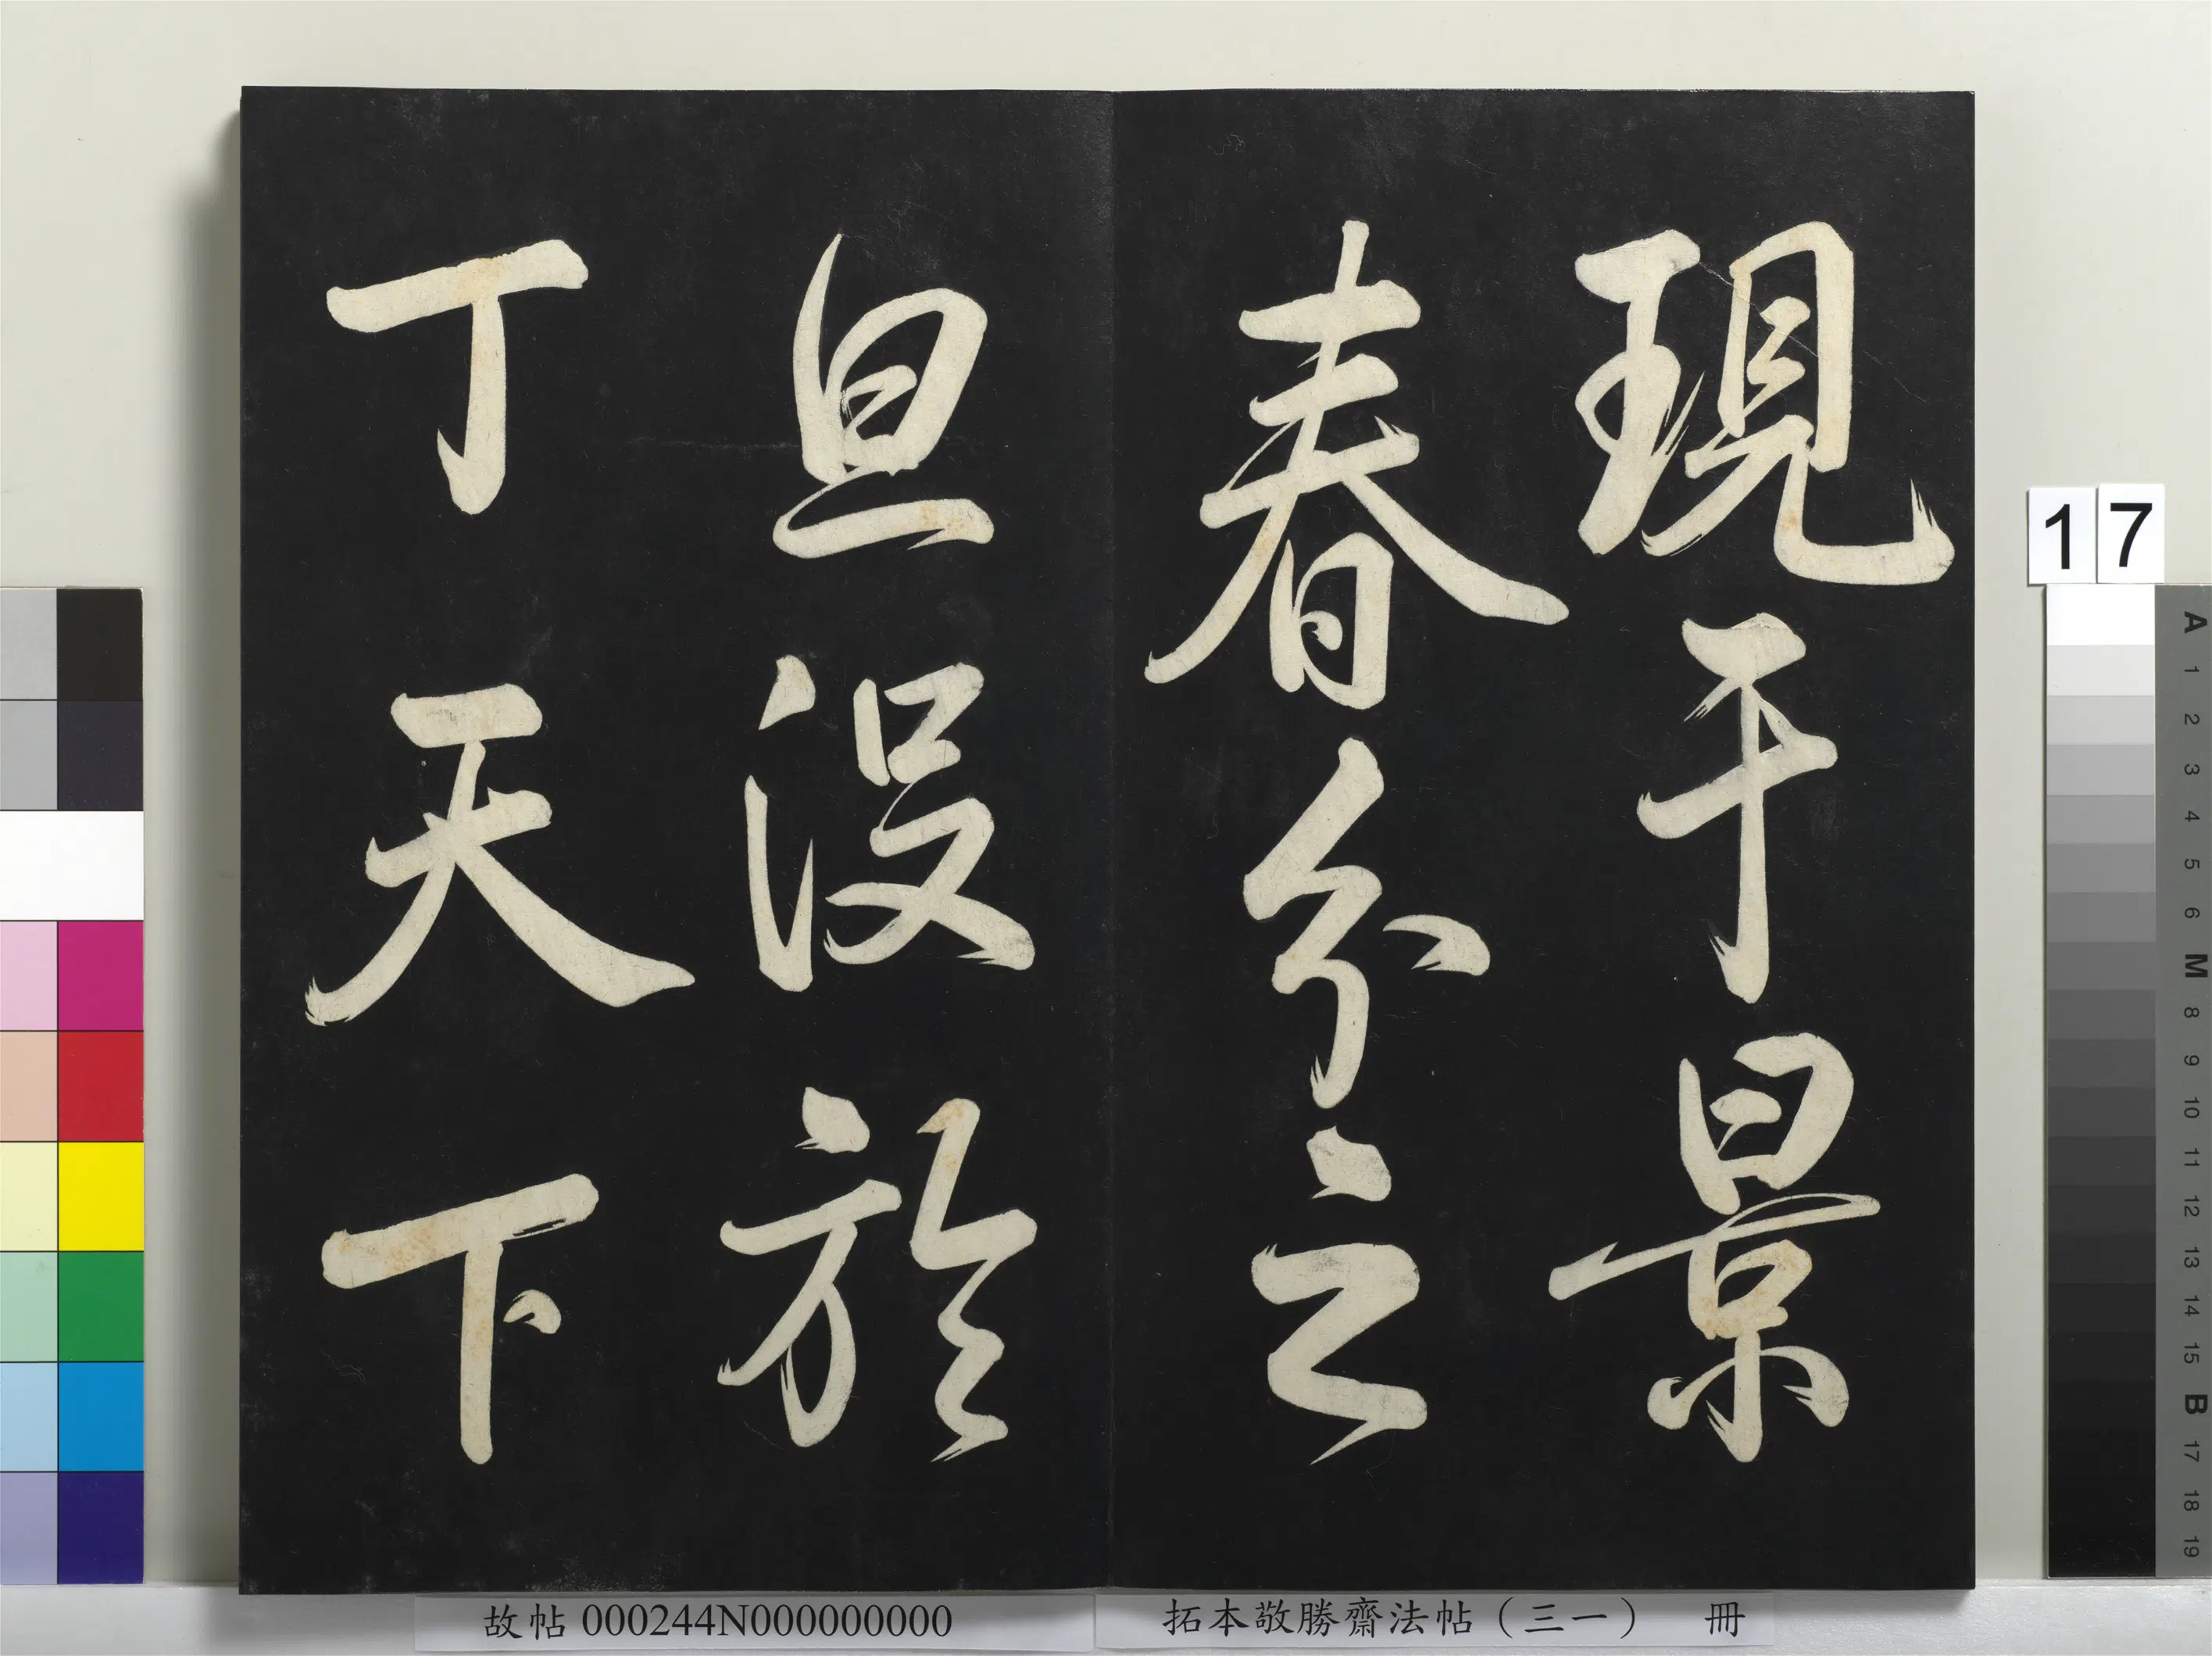 現于景
春分之
旦没於
丁天下
17
A 1 2 3 4 5 6 M 8 9 10 11 12 13 14 15 B 17 18 19
故帖 000244N000000000
拓本敬勝齋法帖（三一） 冊